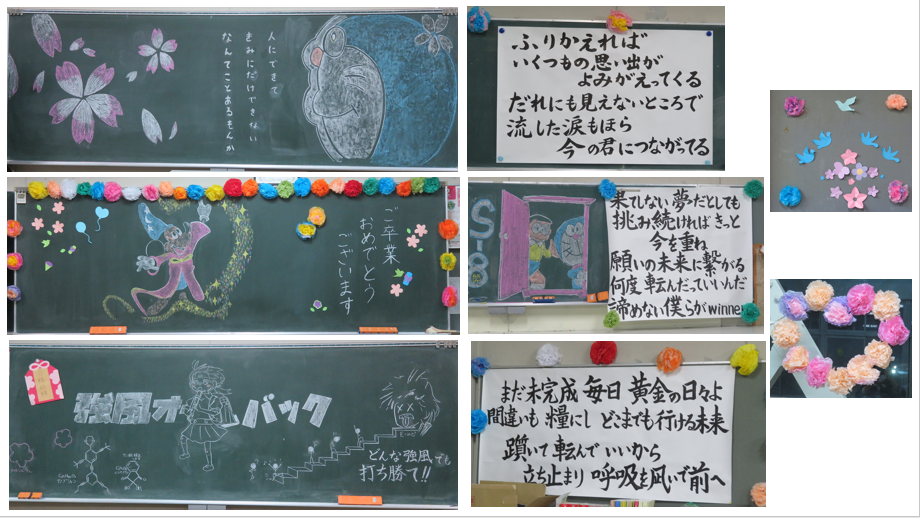 人にできて
きみにだけできない
なんてことあるもんか
ふりかえれば
いくつもの思い出が
よみがえってくる
だれにも見えないところで
流した涙もほら
今の君につながってる
ご卒業
おめでとう
ございます
S-8
果てしない夢だとしても
挑み続ければきっと
今を重ね
願いの未来に繋がる
何度転んだっていいんだ
諦めない僕らがwinner
強風オールバック
どんな強風でも
打ち勝て!!
まだ未完成 毎日 黄金の日々よ
間違いも 糧にし どこまでも行ける未来
躓いて 転んで いいから
立ち止まり 呼吸を凪いで前へ